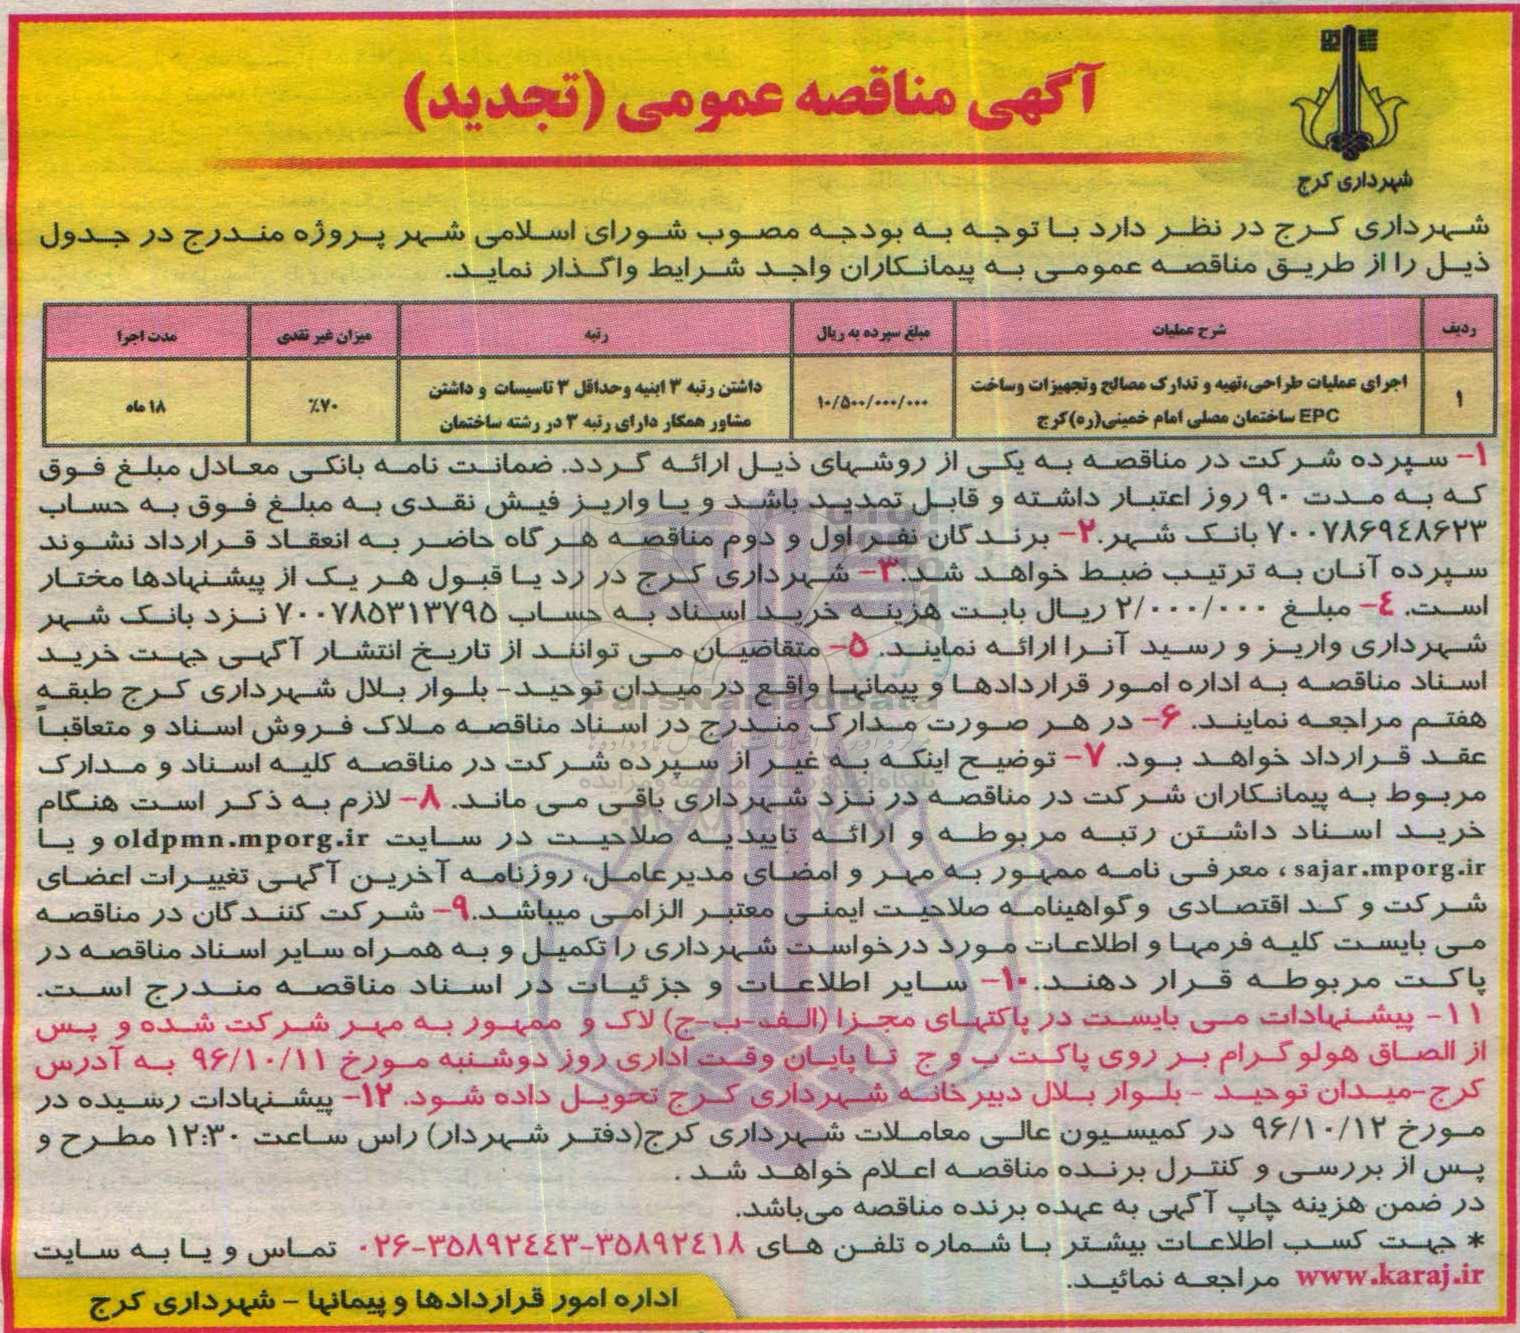 آگهی مناقصه عمومی (تجدید)
شهرداری کرج
شهرداری کرج در نظر دارد با توجه به بودجه مصوب شورای اسلامی شهر پروژه مندرج در جدول
ذیل را از طریق مناقصه عمومی به پیمانکاران واجد شرایط واگذار نماید.
ردیف شرح عملیات مبلغ سپرده به ریال رتبه میزان غیر نقدی مدت اجرا
۱ اجرای عملیات طراحی،تهیه و تدارک مصالح وتجهیزات وساخت EPC ساختمان مصلی امام خمینی(ره)کرج ۱۰/۵۰۰/۰۰۰/۰۰۰ داشتن رتبه ۳ ابنیه وحداقل ۳ تاسیسات و داشتن مشاور همکار دارای رتبه ۳ در رشته ساختمان ۷۰٪ ۱۸ ماه
۱- سپرده شرکت در مناقصه به یکی از روشهای ذیل ارائه گردد. ضمانت نامه بانکی معادل مبلغ فوق
که به مدت ۹۰ روز اعتبار داشته و قابل تمدید باشد و یا واریز فیش نقدی به مبلغ فوق به حساب
۷۰۰۷۸۶۹۴۸۶۲۳ بانک شهر.۲- برندگان نفر اول و دوم مناقصه هرگاه حاضر به انعقاد قرارداد نشوند
سپرده آنان به ترتیب ضبط خواهد شد.۳- شهرداری کرج در رد یا قبول هر یک از پیشنهادها مختار
است. ۴- مبلغ ۲/۰۰۰/۰۰۰ ریال بابت هزینه خرید اسناد به حساب ۷۰۰۷۸۵۳۱۳۷۹۵ نزد بانک شهر
شهرداری واریز و رسید آنرا ارائه نمایند. ۵- متقاضیان می توانند از تاریخ انتشار آگهی جهت خرید
اسناد مناقصه به اداره امور قراردادها و پیمانها واقع در میدان توحید- بلوار بلال شهرداری کرج طبقه
هفتم مراجعه نمایند. ۶- در هر صورت مدارک مندرج در اسناد مناقصه ملاک فروش اسناد و متعاقباً
عقد قرارداد خواهد بود. ۷- توضیح اینکه به غیر از سپرده شرکت در مناقصه کلیه اسناد و مدارک
مربوط به پیمانکاران شرکت در مناقصه در نزد شهرداری باقی می ماند. ۸- لازم به ذکر است هنگام
خرید اسناد داشتن رتبه مربوطه و ارائه تاییدیه صلاحیت در سایت oldpmn.mporg.ir و یا
sajar.mporg.ir ، معرفی نامه ممهور به مهر و امضای مدیرعامل، روزنامه آخرین آگهی تغییرات اعضای
شرکت و کد اقتصادی وگواهینامه صلاحیت ایمنی معتبر الزامی میباشد.۹- شرکت کنندگان در مناقصه
می بایست کلیه فرمها و اطلاعات مورد درخواست شهرداری را تکمیل و به همراه سایر اسناد مناقصه در
پاکت مربوطه قرار دهند.۱۰- سایر اطلاعات و جزئیات در اسناد مناقصه مندرج است.
۱۱- پیشنهادات می بایست در پاکتهای مجزا (الف-ب-ج) لاک و ممهور به مهر شرکت شده و پس
از الصاق هولوگرام بر روی پاکت ب و ج تا پایان وقت اداری روز دوشنبه مورخ ۹۶/۱۰/۱۱ به آدرس
کرج-میدان توحید - بلوار بلال دبیرخانه شهرداری کرج تحویل داده شود. ۱۲- پیشنهادات رسیده در
مورخ ۹۶/۱۰/۱۲ در کمیسیون عالی معاملات شهرداری کرج(دفتر شهردار) راس ساعت ۱۲:۳۰ مطرح و
پس از بررسی و کنترل برنده مناقصه اعلام خواهد شد .
در ضمن هزینه چاپ آگهی به عهده برنده مناقصه می‌باشد.
* جهت کسب اطلاعات بیشتر با شماره تلفن های ۳۵۸۹۲۴۱۸-۳۵۸۹۲۴۴۳-۰۲۶ تماس و یا به سایت
www.karaj.ir مراجعه نمائید.
اداره امور قراردادها و پیمانها - شهرداری کرج
ParsNamadData